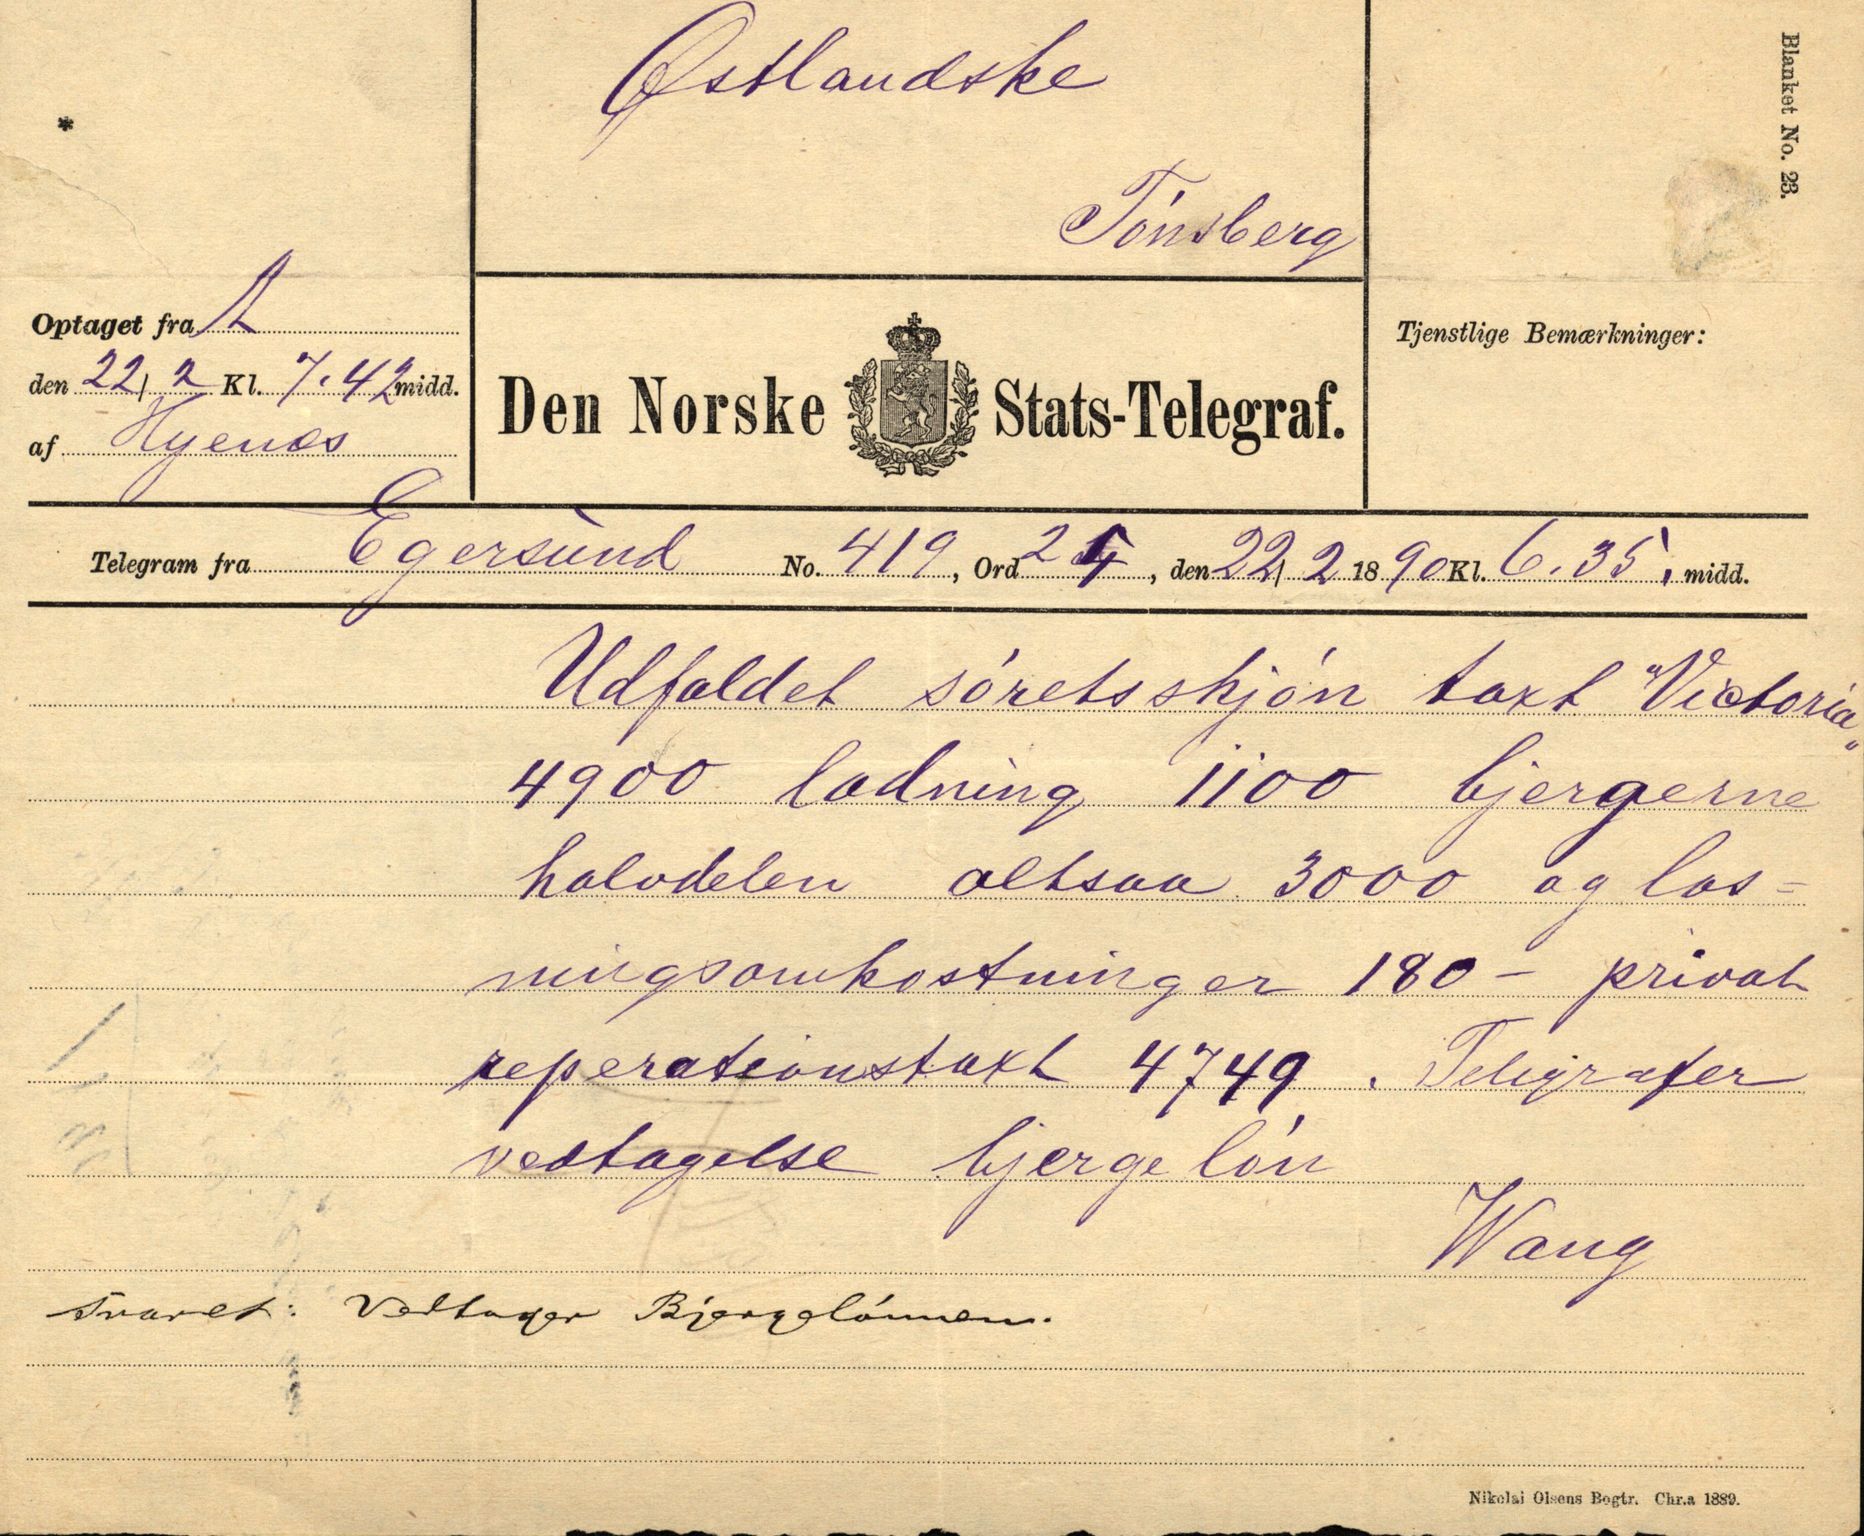 Østlandske
Tónsberg
Blanket No. 23.
*
Optaget fra A
den 22/2 Kl. 7.42 midd.
af Hyenæs
Den Norske Stats-Telegraf.
Tjenstlige Bemærkninger:
Telegram fra Egersùnd No. 419, Ord 24, den 22/2 1890 Kl. 6.35. midd.
Udfaldet sóretsskjón taxt "Victoria"
4900 ladning 1100 bjergerne
halvdelen altsaa 3000 og los=
ningsomkostninger 180 – privat
reperationstaxt 4749. Telegrafer
vedtagelse bjergelón
Wang
Svaret: Vedtager Bjergelónnen.
Nikolai Olsens Bogtr. Chr.a 1889.